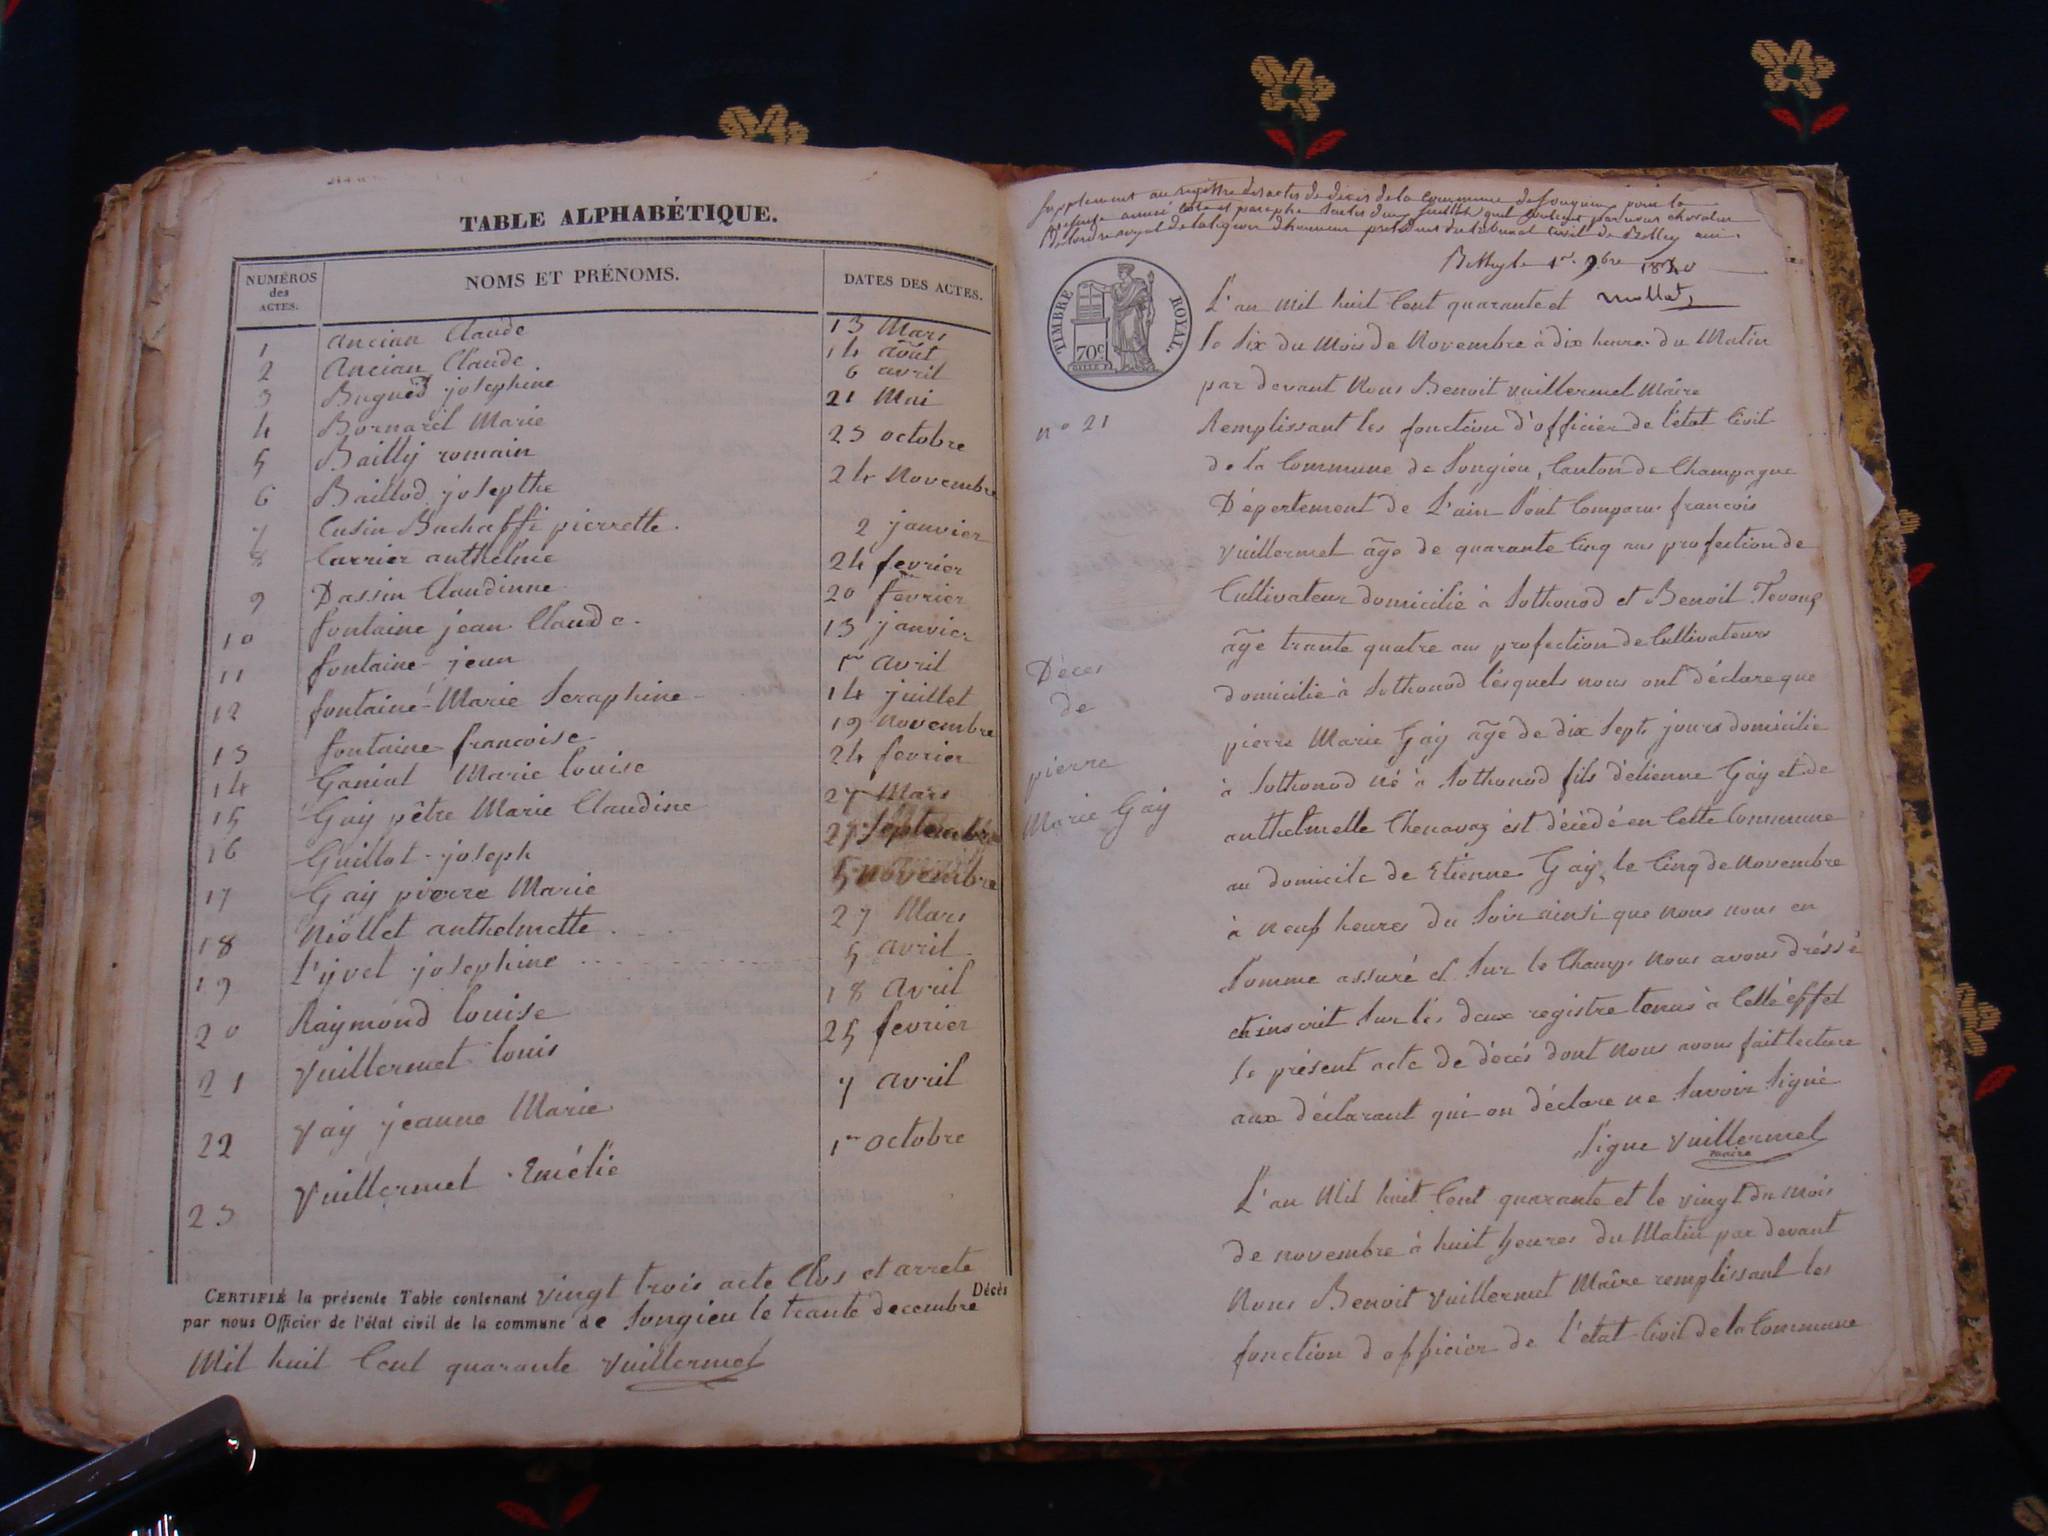 TABLE ALPHABÉTIQUE.
NUMÉROS des ACTES. NOMS ET PRÉNOMS. DATES DES ACTES.
1 Ancian Claude 13 Mars
2 Ancian Claude 14 août
3 Bugned josephine 6 avril
4 Bornarel Marie 21 Mai
5 Bailly romain 23 octobre
6 Baillod josepthe 24 Novembre
7 Cusin Bachaffi pierrette. 2 janvier
8 Carrier anthelme 24 fevrier
9 Dassin Claudinne 20 fevrier
10 fontaine jean Claude. 13 janvier
11 fontaine jean 1er avril
12 fontaine Marie Seraphine 14 juillet
13 fontaine francoise 19 Novembre
14 Ganiat Marie louise 24 fevrier
15 Gay pêtre Marie Claudine 27 Mars
16 Guillot joseph 27 Septembre
17 Gay pierre Marie 5 novembre
18 Niollet anthelmette 27 Mars
19 l'yvet josephine 5 avril
20 Raymond louise 18 Avril
21 Vuillermet louis 25 fevrier
22 Vay jeanne Marie 7 avril
23 Vuillermet Emélie 1er octobre
CERTIFIÉ la présente Table contenant vingt trois acte Clos et arrete Décès
par nous Officier de l'état civil de la commune de Songieu le trante decembre
Mil huit Cent quarante Vuillermet
Supplement au registre des actes de décès de la commune de Songieu pour la
présente année coté et paraphé par nous chevalier
de l'ordre royal de la légion d'honneur président du tribunal civil de Belley
Belley le 1er 9bre 1840
TIMBRE ROYAL. 70c
L'an Mil huit Cent quarante et Mollet
le Six du Mois de Novembre à dix heures du Matin
par devant Nous Benoit Vuillermet Maire
n° 21 Remplissant les fonction d'officier de l'état Civil
de la Commune de Songieu, Canton de Champagne
Département de L'ain Sont Comparu francois
Vuillermet âge de quarante Cinq ans profection de
Cultivateur domicilié à Sothonod et Benoit
âge trante quatre ans profection de Cultivateurs
Décès domicilié à Sothonod lésquels nous ont déclare que
de
pierre Marie Gay âge de dix Sept jours domicilié
pierre
à Sothonod né à Sothonod fils d'etienne Gay et de
Marie Gay anthelmelle Chenavaz est décédé en Cette Commune
au domicile de Etienne Gay, le Cinq de Novembre
à neuf heures du Soir ainsi que nous nous en
Somme assuré et Sur le Champ nous avons dréssé
et inscrit Sur les deux registre tenus à Cette éffet
le présent acte de décés dont nous avons fait lecture
aux déclarant qui on déclare ne Savoir Signé
Signe Vuillermet
maire
L'an Mil huit Cent quarante et le vingt du mois
de novembre à huit heures du Matin par devant
Nous Benoit Vuillermet Maire remplissant les
fonction d'officier de l'état Civil de la Commune